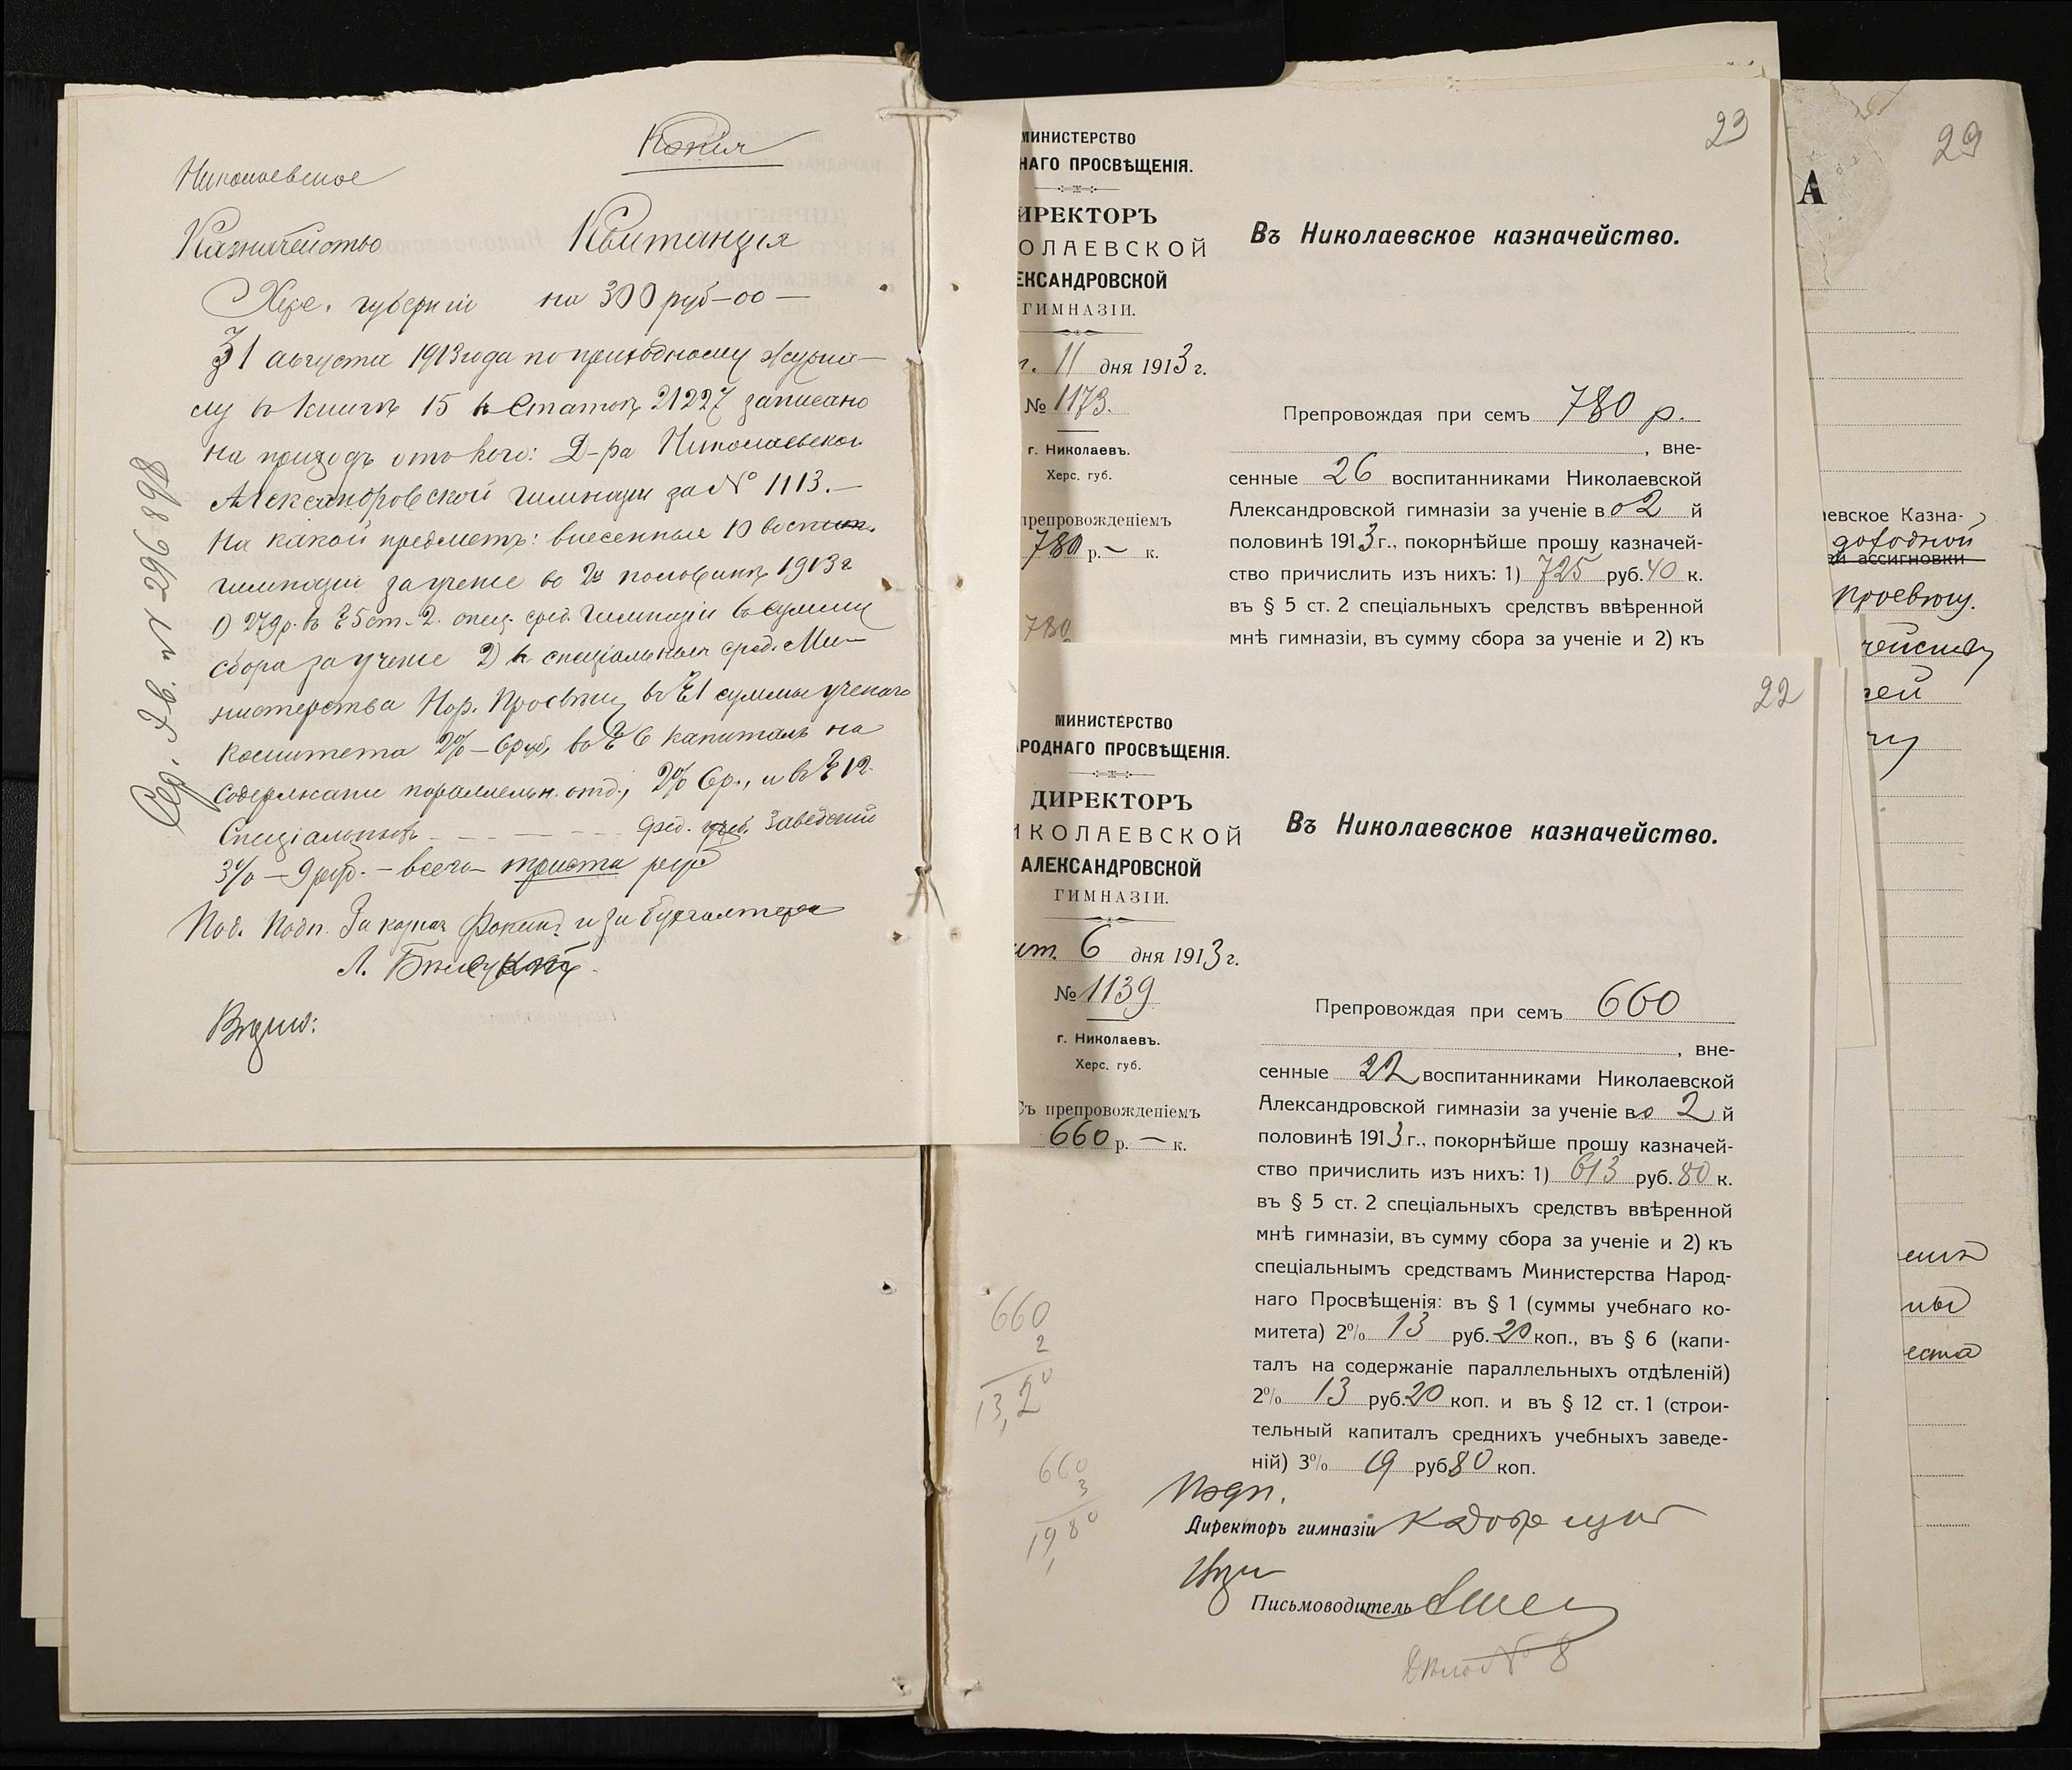 Копія
Николаевское
Казначейство
Квитанція
Херс. губерніи на 300 руб-00-
31 августа 1913 года по приходному журна-
лу въ книгѣ 15 въ Статьѣ 21227 записано
на приходъ отъ кого: Д-ра Николаевской
Александровской гимназіи за № 1113.-
На какой предметъ: внесенные 10 воспит.
гимназіи за ученіе во 2й половинѣ 1913 г
1) 279 р. въ § 5 ст. 2. спец. сред. гимназіи въ сумму
сбора за ученіе 2) къ спеціальнымъ сред. Ми-
нистерства Нар. Просвѣщ. въ § 1 суммы ученаго
комитета 2% - 6 руб, въ § 6 капиталъ на
содержаніе параллельн. отд., 2% 6 р., и въ § 12
Спеціальныхъ - - - - - сред. учеб. Заведеній
3% - 9 руб. - всего триста руб
Под. Подп. За казнач и за бухгалтера
Л.
Вѣрно:
Сер. дв. №
23
МИНИСТЕРСТВО
НАГО ПРОСВѢЩЕНІЯ.
ИРЕКТОРЪ
ОЛАЕВСКОЙ
ЕКСАНДРОВСКОЙ
ГИМНАЗІИ.
т. 11 дня 1913 г.
№ 1173.
г. Николаевъ.
Херс. губ.
препровожденіемъ
780 р. — к.
780
Въ Николаевское казначейство.
Препровождая при семъ 780 р.
, вне-
сенные 26 воспитанниками Николаевской
Александровской гимназіи за ученіе во 2 й
половинѣ 1913 г., покорнѣйше прошу казначей-
ство причислить изъ нихъ: 1) 725 руб. 40 к.
въ § 5 ст. 2 спеціальныхъ средствъ ввѣренной
мнѣ гимназіи, въ сумму сбора за ученіе и 2) къ
22
МИНИСТЕРСТВО
АРОДНАГО ПРОСВѢЩЕНІЯ.
ДИРЕКТОРЪ
ИКОЛАЕВСКОЙ
АЛЕКСАНДРОВСКОЙ
ГИМНАЗІИ.
нт. 6 дня 1913 г.
№ 1139
г. Николаевъ.
Херс. губ.
Съ препровожденіемъ
660 р. — к.
660
2
13,20
660
3
19,80
Въ Николаевское казначейство.
Препровождая при семъ 660
, вне-
сенные 22 воспитанниками Николаевской
Александровской гимназіи за ученіе во 2 й
половинѣ 1913 г., покорнѣйше прошу казначей-
ство причислить изъ нихъ: 1) 613 руб. 80 к.
въ § 5 ст. 2 спеціальныхъ средствъ ввѣренной
мнѣ гимназіи, въ сумму сбора за ученіе и 2) къ
спеціальнымъ средствамъ Министерства Народ-
наго Просвѣщенія: въ § 1 (суммы учебнаго ко-
митета) 2% 13 руб. 20 коп., въ § 6 (капи-
талъ на содержаніе параллельныхъ отдѣленій)
2% 13 руб. 20 коп. и въ § 12 ст. 1 (строи-
тельный капиталъ среднихъ учебныхъ заведе-
ній) 3% 19 руб 80 коп.
Подп.
Директоръ гимназіи
Письмоводитель
Дѣло № 8
29
А
аевское Казна-
доходной
ой ассигновки